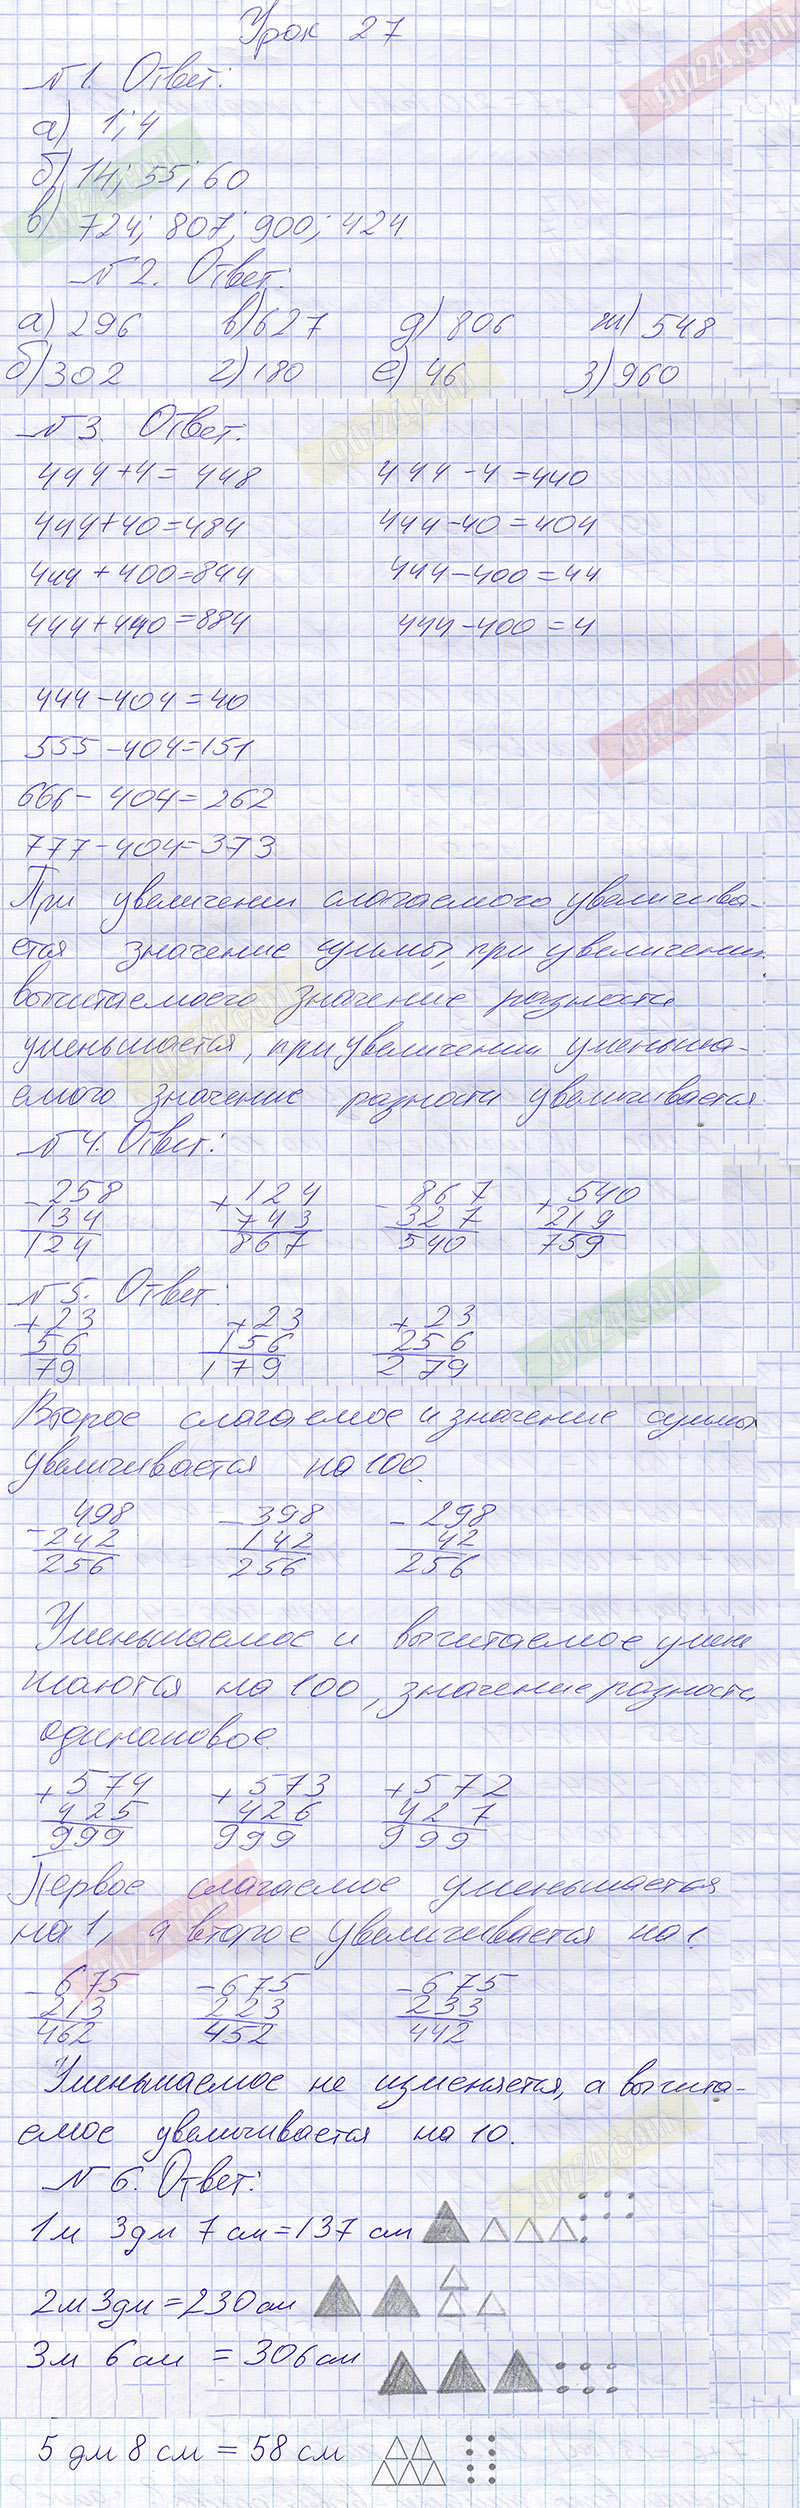 Урок 27
№1. Ответ:
а) 1; 4
б) 14; 55; 60
в) 724; 807; 900; 424
№2. Ответ:
а) 296 в) 627 д) 806 ж) 548
б) 302 г) 180 е) 46 з) 960
№3. Ответ:
444+4=448 444-4=440
444+40=484 444-40=404
444+400=844 444-400=44
444+440=884 444-400=4
444-404=40
555-404=151
666-404=262
777-404=373
При увеличении слагаемого увеличива-
ется значение суммы, при увеличении
вычитаемого значение разности
уменьшается, при увеличении уменьша-
емого значение разности увеличивается
№4. Ответ:
-258 +124 -867 +540
134 743 327 219
124 867 540 759
№5. Ответ:
+23 +23 +23
56 156 256
79 179 279
Второе слагаемое и значение суммы
увеличивается на 100.
-498 -398 -298
242 142 42
256 256 256
Уменьшаемое и вычитаемое умень
шаются на 100, значение разности
одинаковое.
+574 +573 +572
425 426 427
999 999 999
Первое слагаемое уменьшается
на 1, а второе увеличивается на 1.
-675 -675 -675
213 223 233
462 452 442
Уменьшаемое не изменяется, а вычита-
емое увеличивается на 10.
№6. Ответ:
1м 3дм 7см=137 см
2м 3дм=230см
3м 6см = 306см
5 дм 8 см = 58 см
gdz24.com
gdz24.com
gdz24.com
gdz24.com
gdz24.com
gdz24.com
gdz24.com
gdz24.com